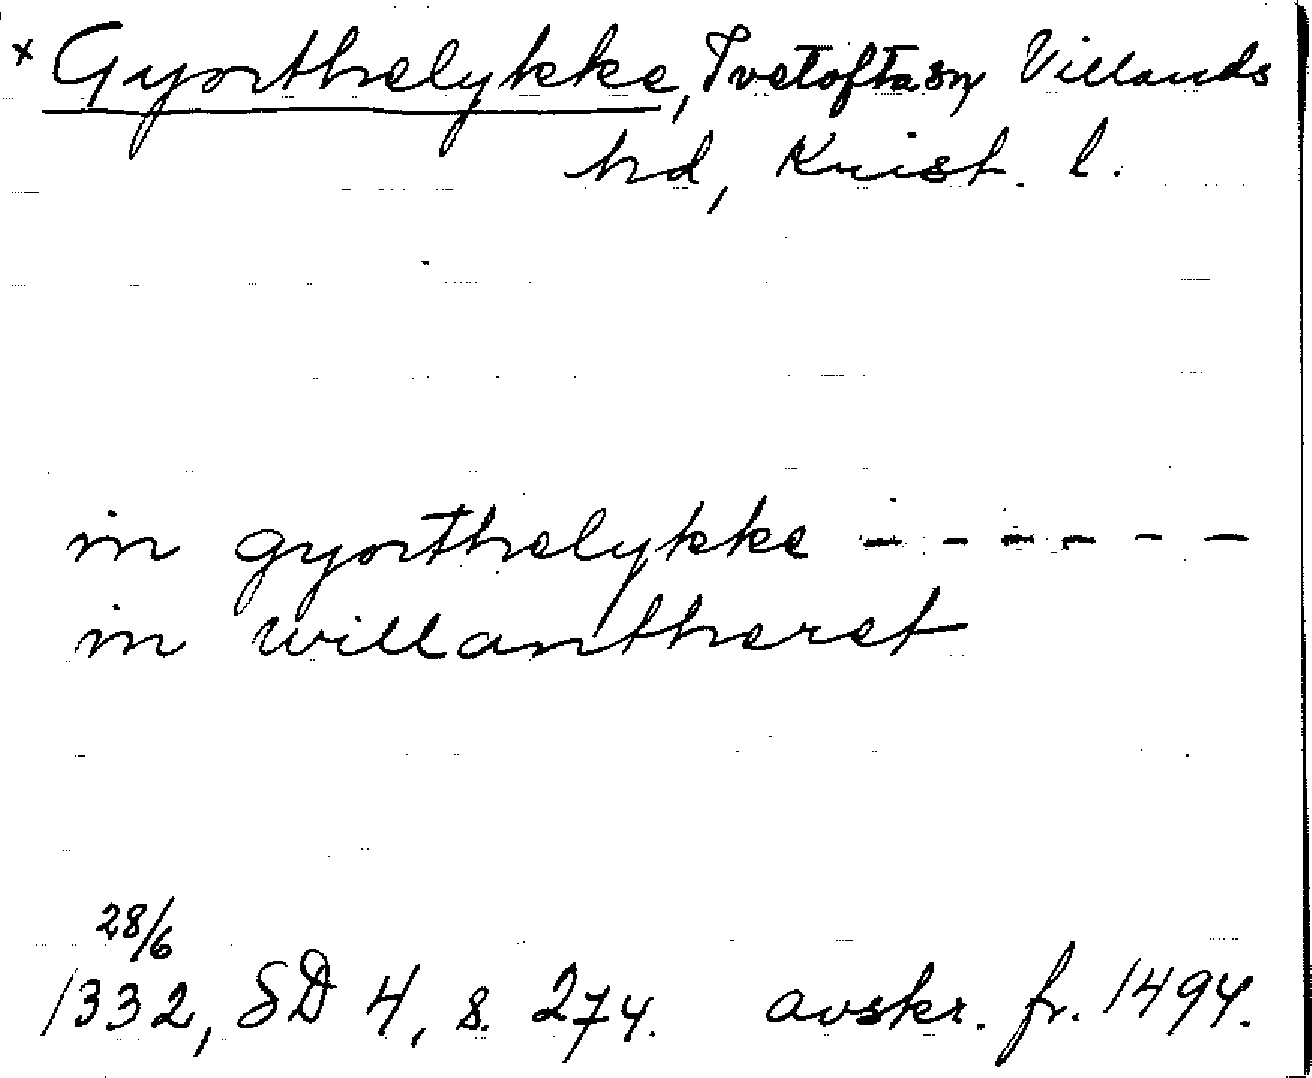 × Gyorthelykke, Tvetofta sn, Villands
hd, Krist. l.
in gyorthelykke - - - - - -
in willantheret
28/6
1332, SD 4, s. 274. avskr. fr. 1494.